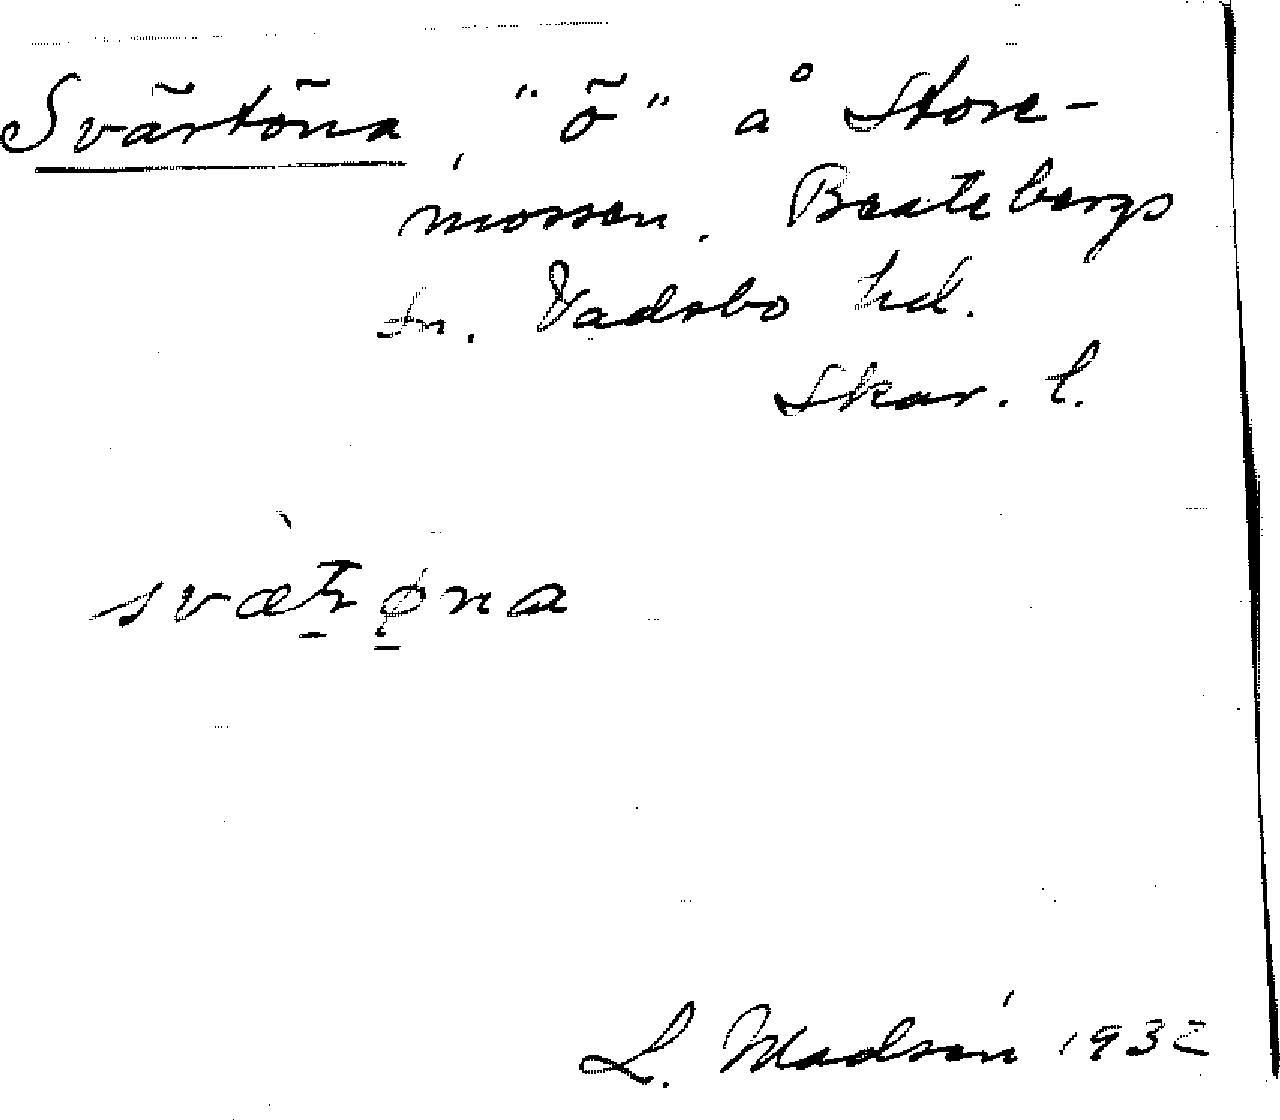 Svärtöna, "ö" å Store-
mossen. Beatebergs
sn. Vadsbo hd.
Skar. l.
svætøna
L. Madsén 1932